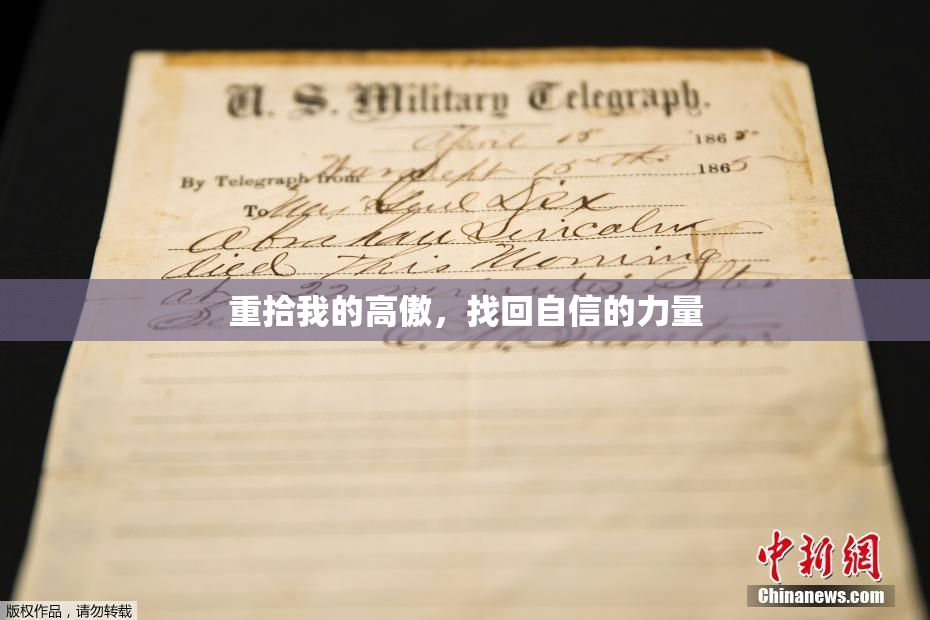 U. S. Military Telegraph.
April 15 1865
By Telegraph from War Dept 15th 1865
To Maj Genl Dix
Abraham Lincoln
died This Morning
at 22 minutes after
重拾我的高傲，找回自信的力量
E. M. Stanton
中新网
Chinanews.com
版权作品，请勿转载